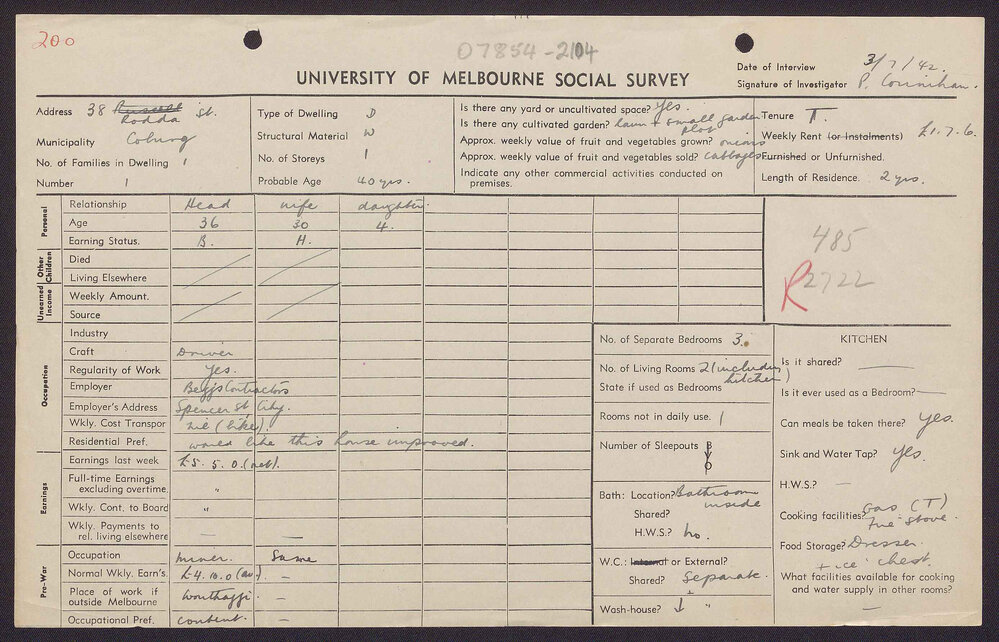 200
07854-2104
UNIVERSITY OF MELBOURNE SOCIAL SURVEY
Date of Interview 3/7/42.
Signature of Investigator P. Counihan.
Address 38 Russell St.
Rodda
Municipality Coburg
No. of Families in Dwelling 1
Number 1
Type of Dwelling D
Structural Material W
No. of Storeys 1
Probable Age 40 yrs.
Is there any yard or uncultivated space? Yes.
Is there any cultivated garden? lawn + small garden plot
Approx. weekly value of fruit and vegetables grown? onions
Approx. weekly value of fruit and vegetables sold? cabbages
Indicate any other commercial activities conducted on premises.
Tenure T.
Weekly Rent (or Instalments) £1.7.6.
Furnished or Unfurnished.
Length of Residence. 2 yrs.
Personal
Relationship Head wife daughter.
Age 36 30 4.
Earning Status. B. H.
Other Children
Died
Living Elsewhere
Unearned Income
Weekly Amount.
Source
485
R2722
Occupation
Industry
Craft Driver
Regularity of Work Yes.
Employer Beggs Contractors
Employer's Address Spencer St City.
Wkly. Cost Transpor Nil (bike).
Residential Pref. would like this house improved.
Earnings
Earnings last week £5. 5. 0. (net).
Full-time Earnings excluding overtime. "
Wkly. Cont. to Board "
Wkly. Payments to rel. living elsewhere — —
Pre-War
Occupation miner. Same
Normal Wkly. Earn's. £4.10.0 (av). —
Place of work if outside Melbourne Wonthaggi. —
Occupational Pref. content. -
No. of Separate Bedrooms 3.
No. of Living Rooms 2 (includes kitchen)
State if used as Bedrooms
Rooms not in daily use. 1
Number of Sleepouts B
Y
O
Bath: Location? Bathroom inside
Shared?
H.W.S.? no.
W.C.: Internal or External?
Shared? Separate.
Wash-house? "
KITCHEN
Is it shared? —
Is it ever used as a Bedroom? —
Can meals be taken there? Yes.
Sink and Water Tap? Yes.
H.W.S.? —
Cooking facilities? Gas (T)
Fire Stove.
Food Storage? Dresser
+ ice chest.
What facilities available for cooking and water supply in other rooms?
—